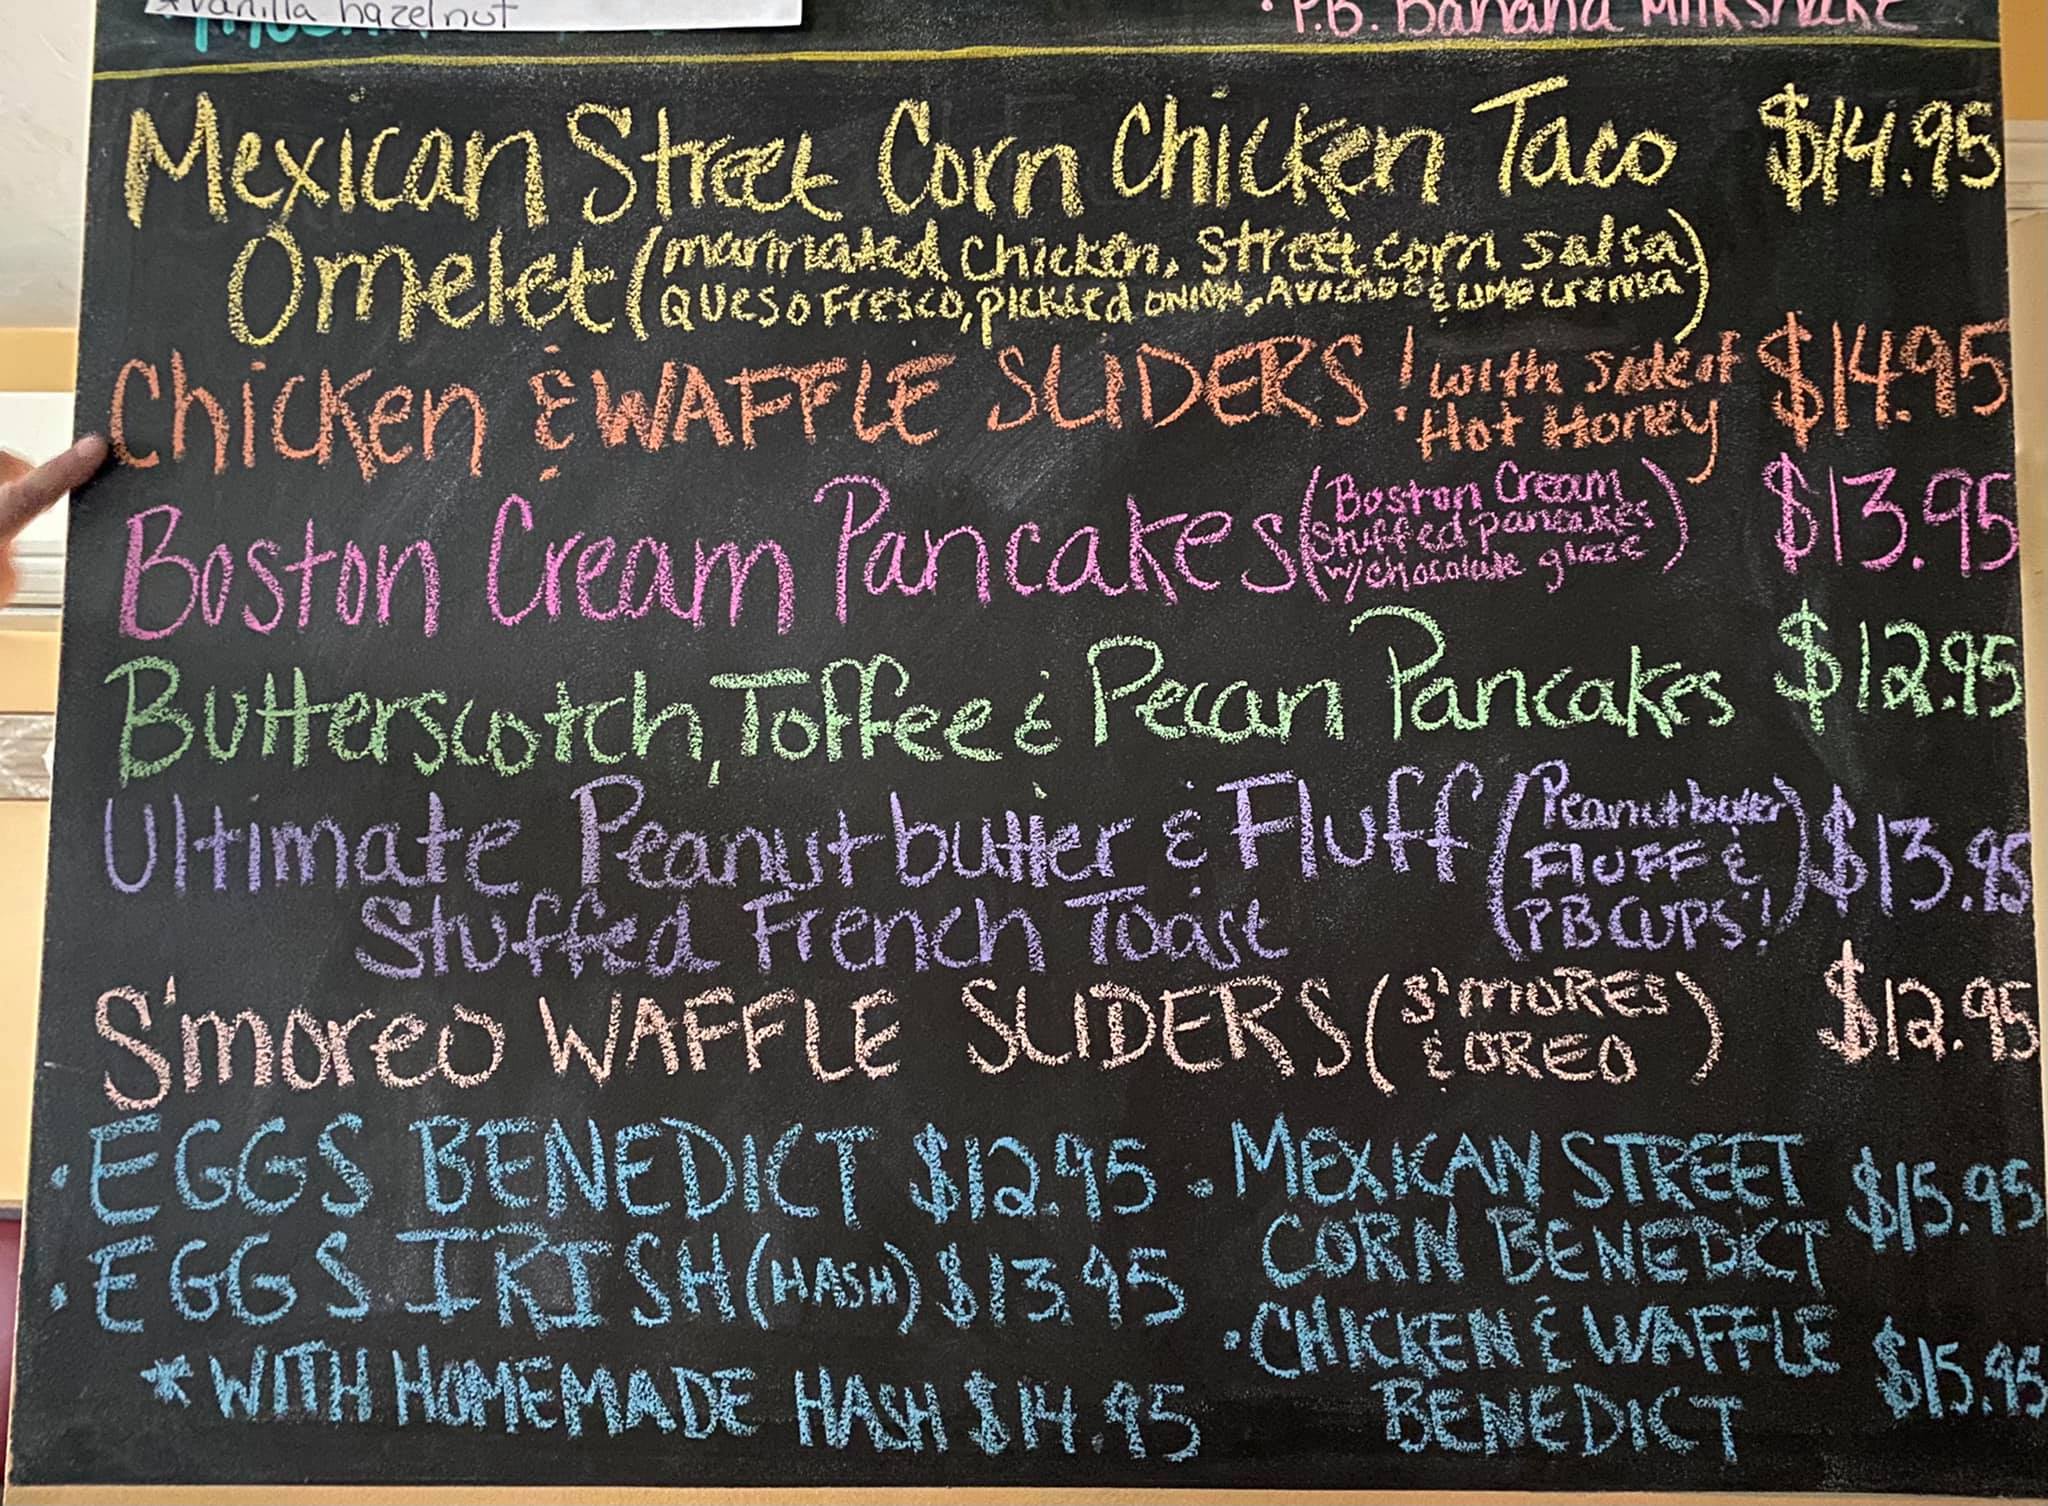 *vanilla hazelnut
• P.B. Banana Milkshake
Mexican Street Corn Chicken Taco $14.95
Omelet (marinated chicken, street corn salsa,
Queso Fresco, pickled onion, Avocado & lime crema)
Chicken & WAFFLE SLIDERS! with side of $14.95
Hot Honey
Boston Cream Pancakes (Boston Cream $13.95
Stuffed pancakes
w/ chocolate glaze)
Butterscotch, Toffee & Pecan Pancakes $12.95
Ultimate Peanut butter & Fluff (Peanut butter $13.95
Fluff &
Stuffed French Toast PB CUPS!)
S'moreo WAFFLE SLIDERS (S'MORES $12.95
& OREO)
• EGGS BENEDICT $12.95
• EGGS IRISH (HASH) $13.95
*WITH HOMEMADE HASH $14.95
• MEXICAN STREET $15.95
CORN BENEDICT
• CHICKEN & WAFFLE $15.95
BENEDICT